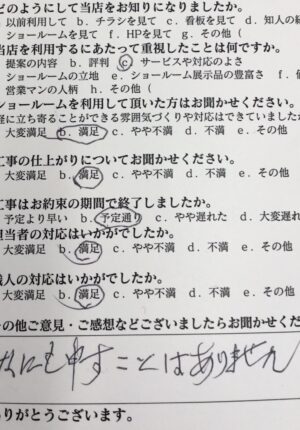 どのようにして当店をお知りになりましたか。
以前利用して b. チラシを見て c. 看板を見て d. 知人の
ショールームを見て f. HPを見て g. その他（
当店を利用するにあたって重視したことは何ですか。
提案の内容 b. 評判 c. サービスや対応のよさ
ショールームの立地 e. ショールーム展示品の豊富さ f.
営業マンの人柄 h. その他（
ショールームを利用して頂いた方はお聞かせください。
軽に立ち寄ることができる雰囲気づくりや対応はできていました
大変満足 b. 満足 c. やや不満 d. 不満 e. その他
工事の仕上がりについてお聞かせください。
大変満足 b. 満足 c. やや不満 d. 不満 e. その他
工事はお約束の期間で終了しましたか。
予定より早い b. 予定通り c. やや遅れた d. 大変遅
担当者の対応はいかがでしたか。
大変満足 b. 満足 c. やや不満 d. 不満 e. その他
職人の対応はいかがでしたか。
大変満足 b. 満足 c. やや不満 d. 不満 e. その他
その他ご意見・ご感想などございましたらお聞かせくだ
なにも申すことはありません
ありがとうございます。